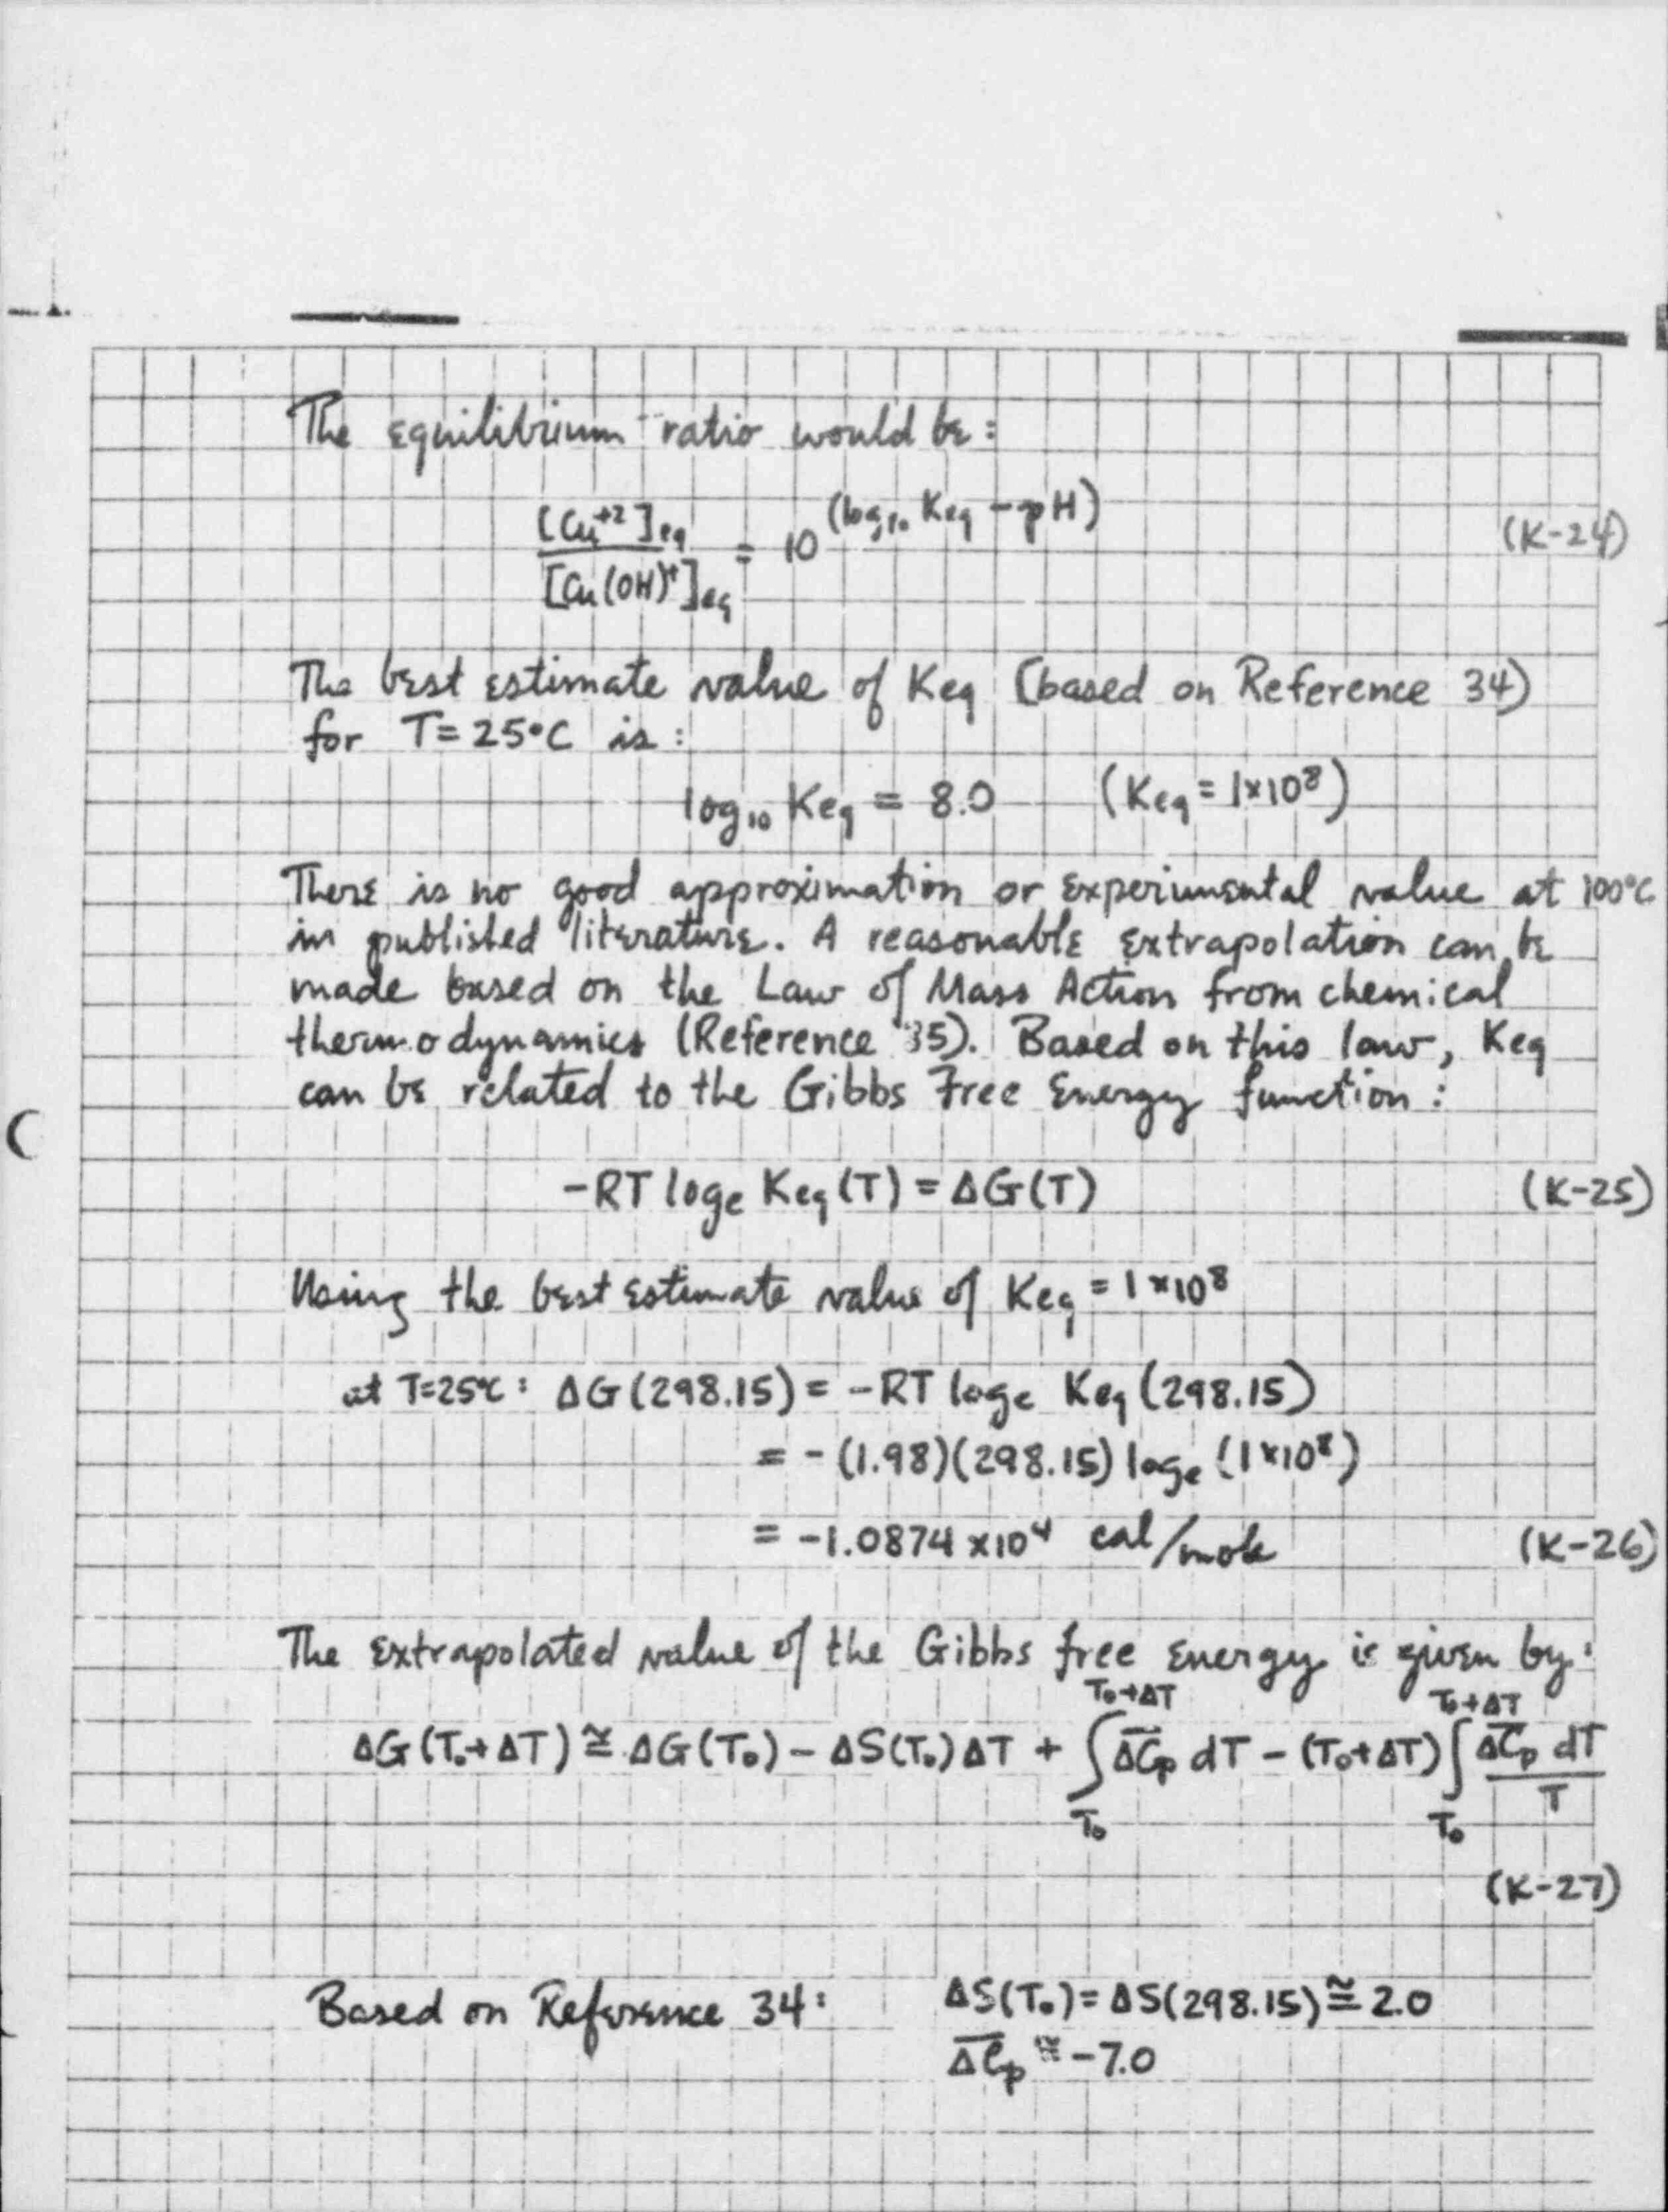 The equilibrium ratio would be:
[Cu+2]eq / [Cu(OH)+]eq = 10^(log10 Keq - pH) (K-24)
The best estimate value of Keq (based on Reference 34)
for T=25°C is:
log10 Keq = 8.0 (Keq = 1×10^8)
There is no good approximation or experimental value at 100°C
in published literature. A reasonable extrapolation can be
made based on the Law of Mass Action from chemical
thermodynamics (Reference 35). Based on this law, Keq
can be related to the Gibbs Free Energy function:
-RT loge Keq(T) = ΔG(T) (K-25)
Using the best estimate value of Keq = 1×10^8
at T=25°C: ΔG(298.15) = -RT loge Keq(298.15)
= -(1.98)(298.15) loge (1×10^8)
= -1.0874×10^4 cal/mole (K-26)
The extrapolated value of the Gibbs free energy is given by:
ΔG(T₀+ΔT) ≅ ΔG(T₀) - ΔS(T₀)ΔT + ∫_{T₀}^{T₀+ΔT} \overline{ΔCp} dT - (T₀+ΔT) ∫_{T₀}^{T₀+ΔT} \overline{ΔCp} dT / T
(K-27)
Based on Reference 34: ΔS(T₀) = ΔS(298.15) ≅ 2.0
\overline{ΔCp} ≅ -7.0